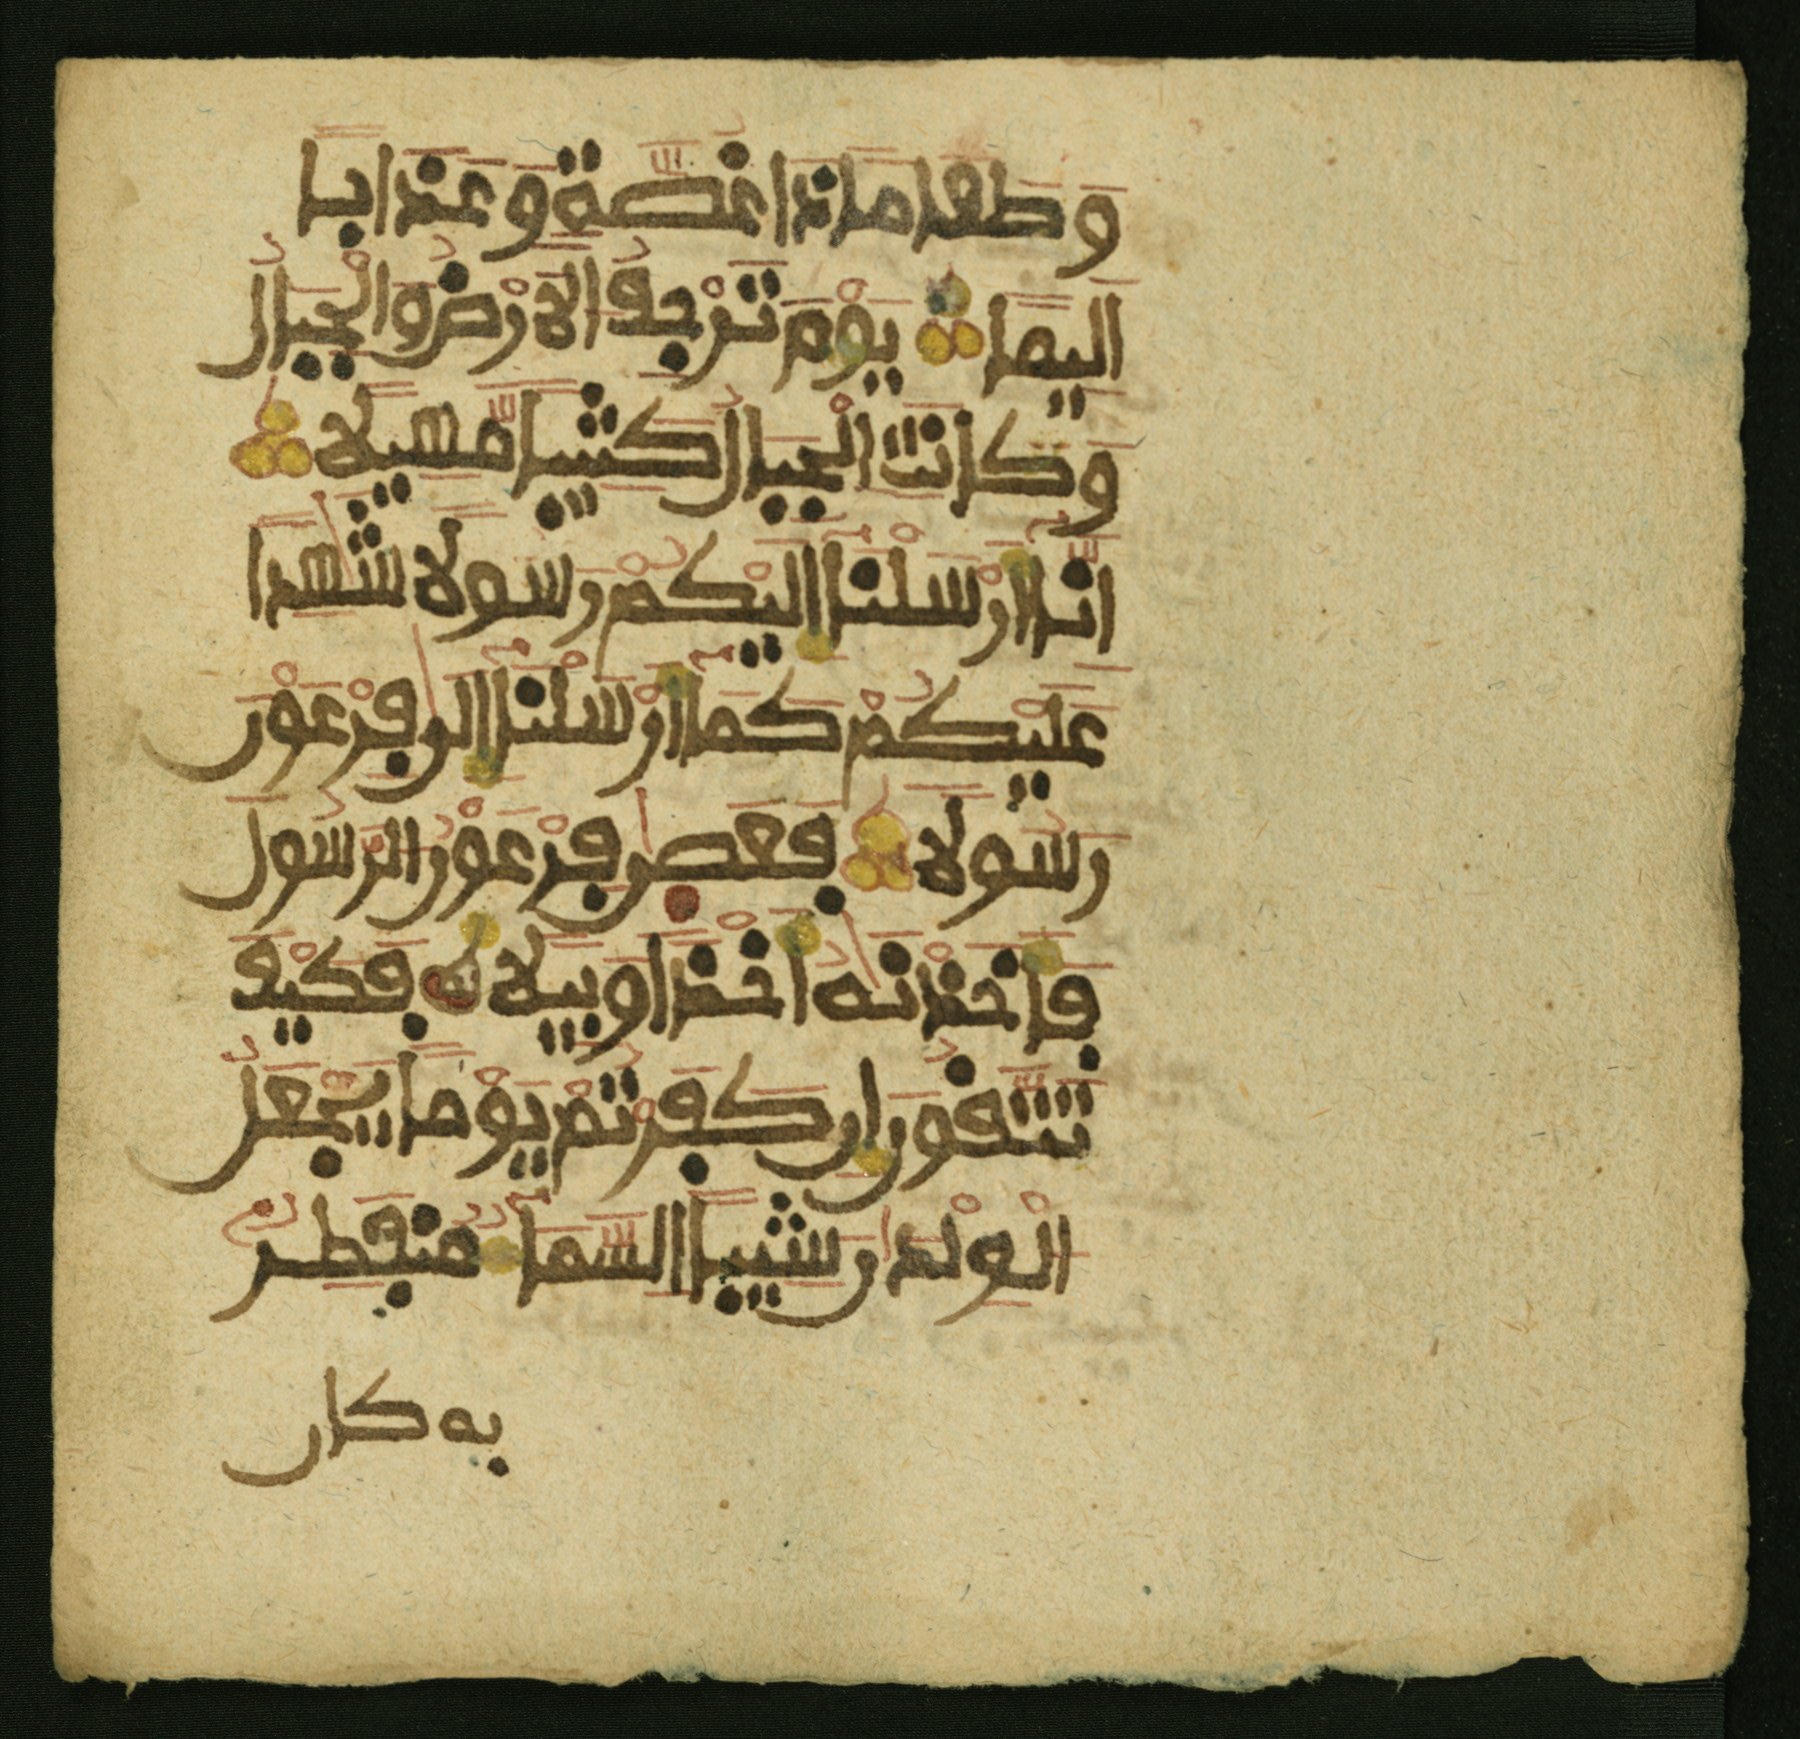 وَطَعَامًا ذَا غُصَّةٍ وَعَذَابًا
اَلِيمًا يَوْمَ تَرْجُفُ الَارْضُ وَالْجِبَالُ
وَكَانَتِ الْجِبَالُ كَثِيبًا مَّهِيلًا
إِنَّا أَرْسَلْنَا إِلَيْكُمْ رَسُولًا شَٰهِدًا
عَلَيْكُمْ كَمَا أَرْسَلْنَا إِلَىٰ فِرْعَوْنَ
رَسُولًا فَعَصَىٰ فِرْعَوْنُ الرَّسُولَ
فَأَخَذْنَٰهُ أَخْذًا وَبِيلًا فَكَيْفَ
تَتَّقُونَ إِن كَفَرْتُمْ يَوْمًا يَّجْعَلُ
الْوِلْدَٰنَ شِيبًا السَّمَاءُ مُنفَطِرٌ
به كان